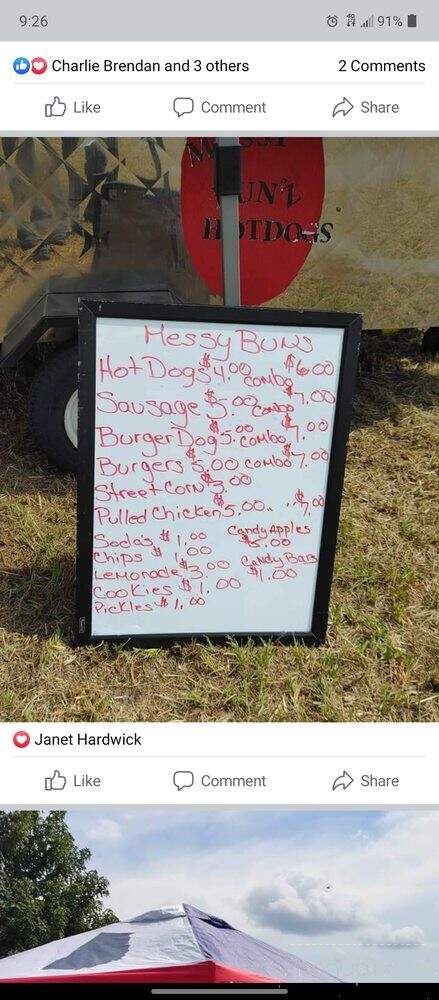 9:26
91%
Charlie Brendan and 3 others 2 Comments
Like Comment Share
MESSY
BUN'Z
HOTDOGS
Messy Buns
Hot Dogs $4.00 combo $6.00
Sausage $5.00 combo $7.00
Burger Dog $5.00 combo $7.00
Burgers $5.00 combo $7.00
Street Corn $3.00
Pulled Chicken $5.00.. .. $7.00
Soda's $1.00 Candy Apples
Chips $1.00 $5.00
Lemonade $3.00 Candy Bars
Cookies $1.00 $1.00
Pickles $1.00
Janet Hardwick
Like Comment Share